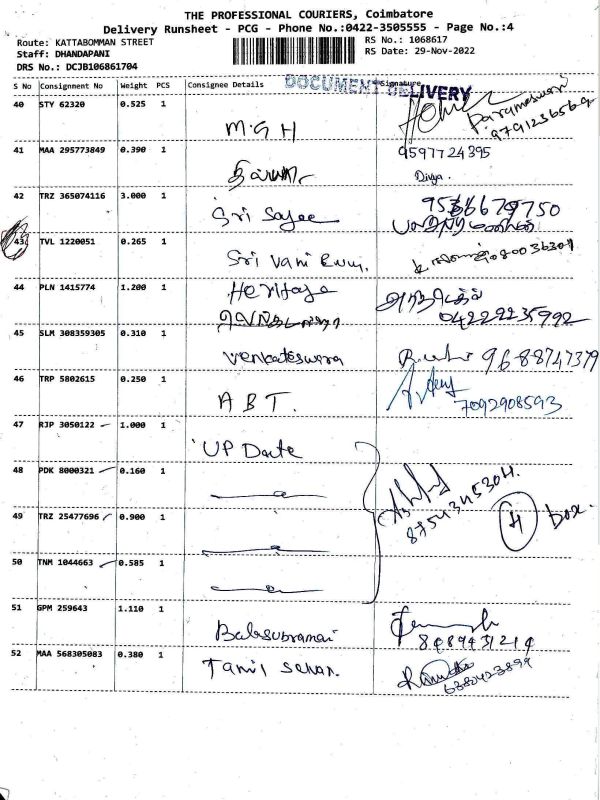 THE PROFESSIONAL COURIERS, Coimbatore
Delivery Runsheet - PCG - Phone No.:0422-3505555 - Page No.:4
Route: KATTABOMMAN STREET
RS No.: 1068617
Staff: DHANDAPANI
RS Date: 29-Nov-2022
DRS No.: DCJB106861704
S No Consignment No Weight PCS Consignee Details Signature
DOCUMENT DELIVERY
40 STY 62320 0.525 1
M.G H
Parameswari
9791236569
41 MAA 295773849 0.390 1
9597724395
Divya.
42 TRZ 365074116 3.000 1
Sri Sajee
43 TVL 1220051 0.265 1
Sri Vani
44 PLN 1415774 1.200 1
Heritage
04222235992
45 SLM 308359305 0.310 1
Venkateswara
9688747379
46 TRP 5802615 0.250 1
A B T.
7092908593
47 RJP 3050122 1.000 1
UP Date
48 PDK 8000321 0.160 1
8754345304.
49 TRZ 25477696 0.900 1
4 box.
50 TNM 1044663 0.585 1
51 GPM 259643 1.110 1
Balasubramani
8489431214
52 MAA 568305083 0.380 1
Tamil Selvan.
6380423899